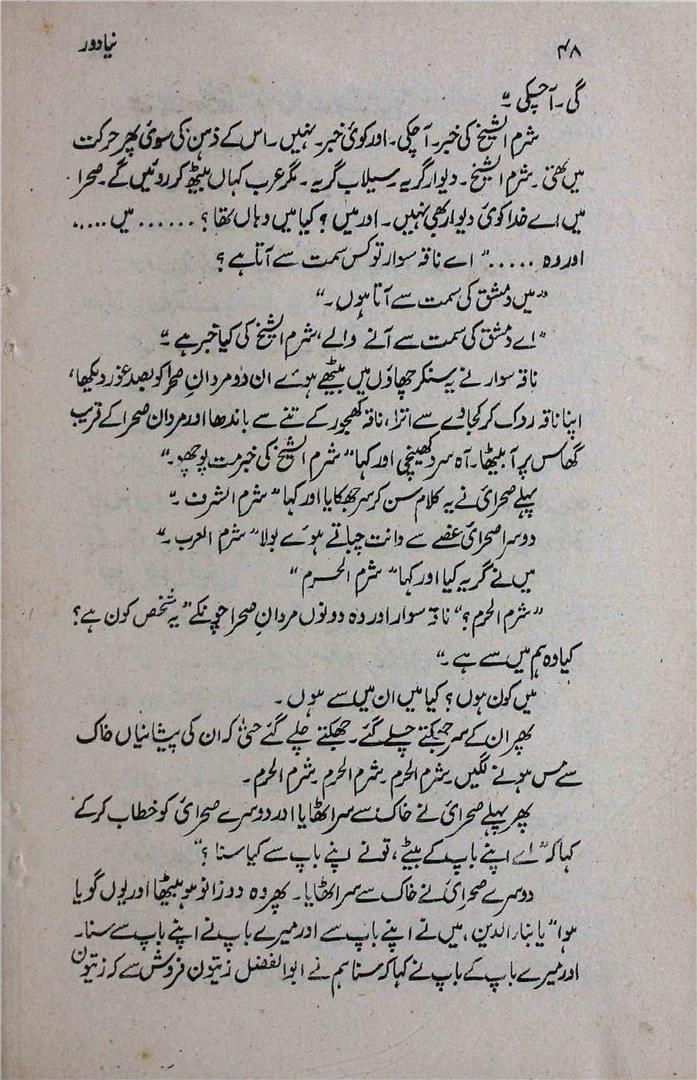 ۴۸ نیا دور
گی۔ آ چکی ۔"
شرم الشیخ کی خبر۔ آ چکی۔ اور کوئی خبر۔ نہیں۔ اس کے ذہن کی سوئی پھر حرکت
میں تھی ۔ شرم الشیخ ۔ دیوار گریہ ۔ سیلاب گریہ ۔ مگر عرب کہاں بیٹھ کر روئیں گے۔ صحرا
میں اے خدا کوئی دیوار بھی نہیں۔ اور میں ؟ کیا میں وہاں تھا ؟ ...... میں .....
اور وہ ....." اے ناقہ سوار تو کس سمت سے آتا ہے ؟
"میں دمشق کی سمت سے آتا ہوں ۔"
"اے دمشق کی سمت سے آنے والے، شرم الشیخ کی کیا خبر ہے ۔"
ناقہ سوار نے یہ سنکر چھاؤں میں بیٹھے ہوئے ان دو مردانِ صحرا کو بصد غور دیکھا،
اپنا ناقہ روک کر کجاوے سے اترا، ناقہ کھجور کے تنے سے باندھا اور مردان صحرا کے قریب
گھاس پر آ بیٹھا۔ آہ سرد کھینچی اور کہا "شرم الشیخ کی خبر مت پوچھو۔"
پہلے صحرائی نے یہ کلام سن کر سر جھکایا اور کہا "شرم الشرف ۔"
دوسرا صحرائی غصے سے دانت چباتے ہوئے بولا "شرم العرب ۔"
میں نے گریہ کیا اور کہا "شرم الحرم "
"شرم الحرم ؟" ناقہ سوار اور وہ دونوں مردانِ صحرا چونکے "یہ شخص کون ہے؟
کیا وہ ہم میں سے ہے ۔"
میں کون ہوں ؟ کیا میں ان میں سے ہوں ۔
پھر ان کے سر جھکتے چلے گئے۔ جھکتے چلے گئے حتیٰ کہ ان کی پیشانیاں خاک
سے مس ہونے لگیں۔ شرم الحرم ۔ شرم الحرم ۔ شرم الحرم۔
پھر پہلے صحرائی نے خاک سے سر اٹھایا اور دوسرے صحرائی کو خطاب کر کے
کہا کہ "اے اپنے باپ کے بیٹے ، تو نے اپنے باپ سے کیا سنا ؟"
دوسرے صحرائی نے خاک سے سر اٹھایا۔ پھر وہ دوزانو ہو بیٹھا اور یوں گویا
ہوا "یا بناء الدین ، میں نے اپنے باپ سے اور میرے باپ نے اپنے باپ سے سنا۔
اور میرے باپ کے باپ نے کہا کہ سنا ہم نے ابو الفضل زیتون فروش سے کہ زیتون